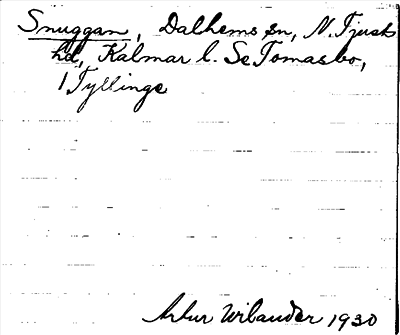 Snuggan, Dalhems sn, N. Tjusts
hd, Kalmar l. Se Tomasbo,
1 Tyllinge
Artur Wilander 1930